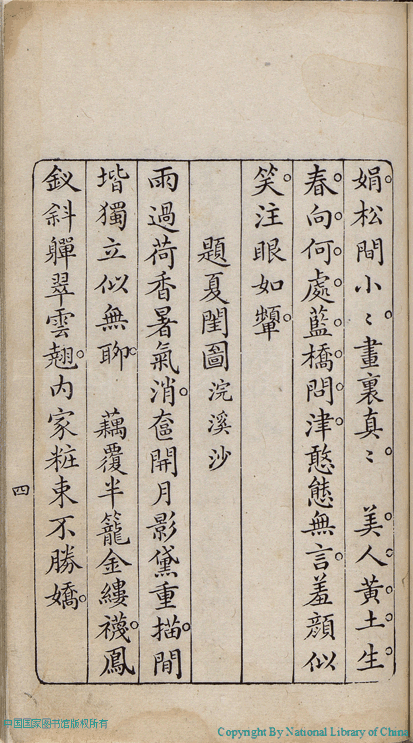 娟松間小〻畫裏真〻　美人黄土生
春向何處藍橋問津憨態無言羞顔似
笑注眼如顰
題夏閨圖浣溪沙
雨過荷香暑氣消奩開月影黛重描閒
堦獨立似無聊　藕覆半籠金縷襪鳳
釵斜軃翠雲翹内家粧束不勝嬌
四
中国国家图书馆版权所有
Copyright By National Library of China